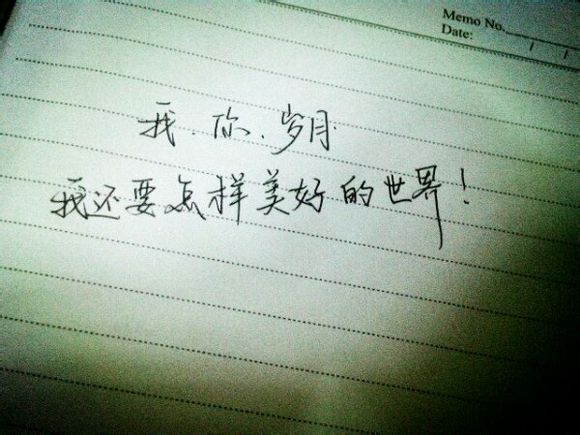 Memo No.
Date: / /
我.你.岁月
我还要怎样美好的世界!